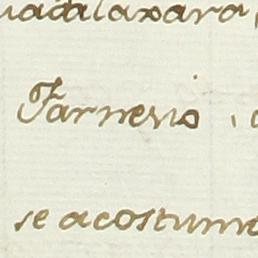 uadalaxara
Farnesio
se acostum